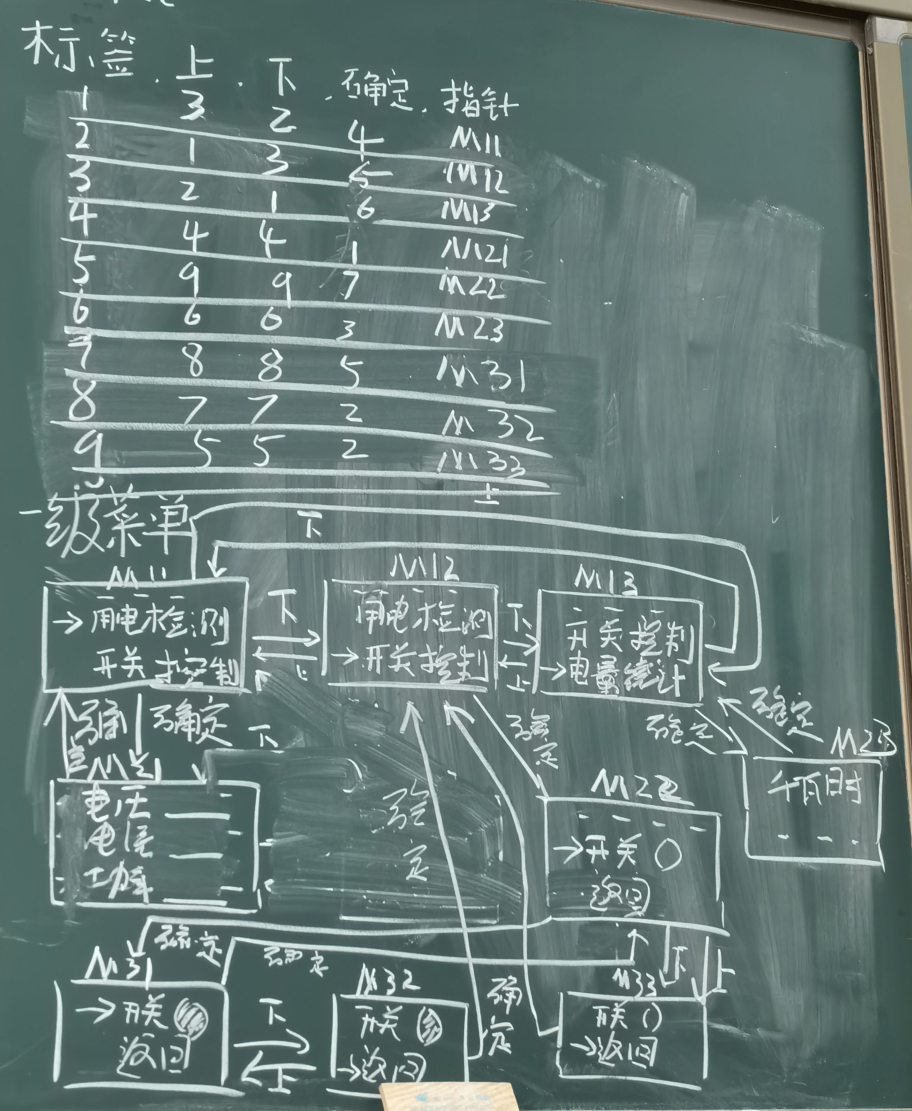 标签 上 下 确定 指针
1 3 2 4 M11
2 1 3 5 M12
3 2 1 6 M13
4 4 4 1 M21
5 9 9 7 M22
6 6 6 3 M23
7 8 8 5 M31
8 7 7 2 M32
9 5 5 2 M33
一级菜单
上
下
M11
→用电检测
开关控制
下
上
M12
用电检测
→开关控制
下
上
M13
开关控制
→电量统计
确定
确定
下
确定
确定
确定
M21
电压
电流
功率
确定
M22
→开关
返回
M23
千瓦时
确定
确定
下
上
M31
→开关
返回
下
上
M32
开关
→返回
确定
M33
开关
→返回